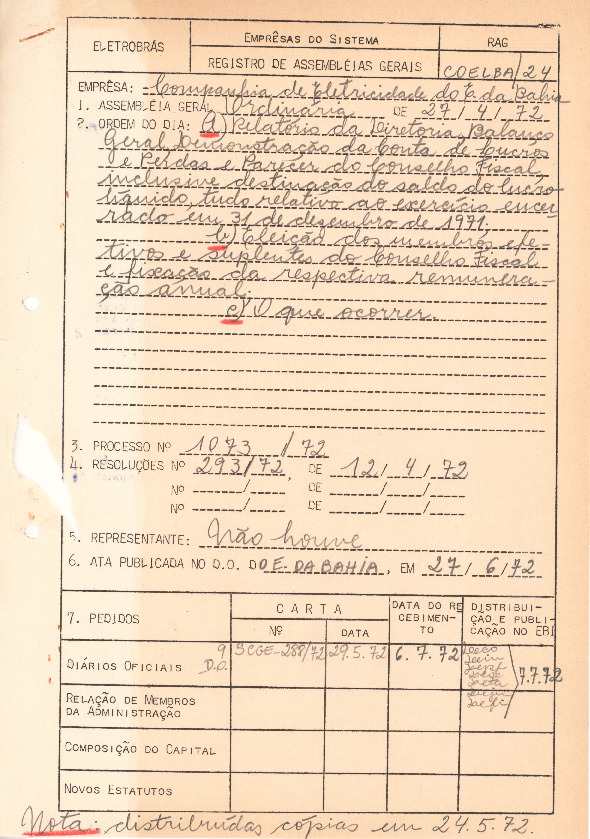 ELETROBRÁS
EMPRÊSAS DO SISTEMA
RAG
REGISTRO DE ASSEMBLÉIAS GERAIS
COELBA/24
EMPRÊSA: Companhia de Eletricidade do E. da Bahia
1. ASSEMBLÉIA GERAL Ordinária DE 27/4/72
2. ORDEM DO DIA: a) Relatório da Diretoria, Balanço
Geral, Demonstração da Conta de Lucros
e Perdas e Parecer do Conselho Fiscal,
inclusive destinação do saldo do lucro
líquido, tudo relativo ao exercício encer
rado em 31 de desembro de 1971.
b) Eleição dos membros efe-
tivos e suplentes do Conselho Fiscal
e fixação da respectiva remunera-
ção anual.
c) O que ocorrer.
3. PROCESSO Nº 1073/72
4. RESOLUÇÕES Nº 293/72, DE 12/4/72
Nº ___/___ DE ___/___/___
Nº ___/___ DE ___/___/___
5. REPRESENTANTE: Não houve
6. ATA PUBLICADA NO D.O. DO E. DA BAHIA, EM 27/6/72
7. PEDIDOS
CARTA
Nº
DATA
DATA DO RE
CEBIMEN-
TO
DISTRIBUI-
ÇÃO E PUBLI-
CAÇÃO NO EBI
DIÁRIOS OFICIAIS 9 D.O.
SCGE-288/72
29.5.72
6.7.72
7.7.72
RELAÇÃO DE MEMBROS
DA ADMINISTRAÇÃO
COMPOSIÇÃO DO CAPITAL
NOVOS ESTATUTOS
Nota: distribuídas cópias em 24.5.72.